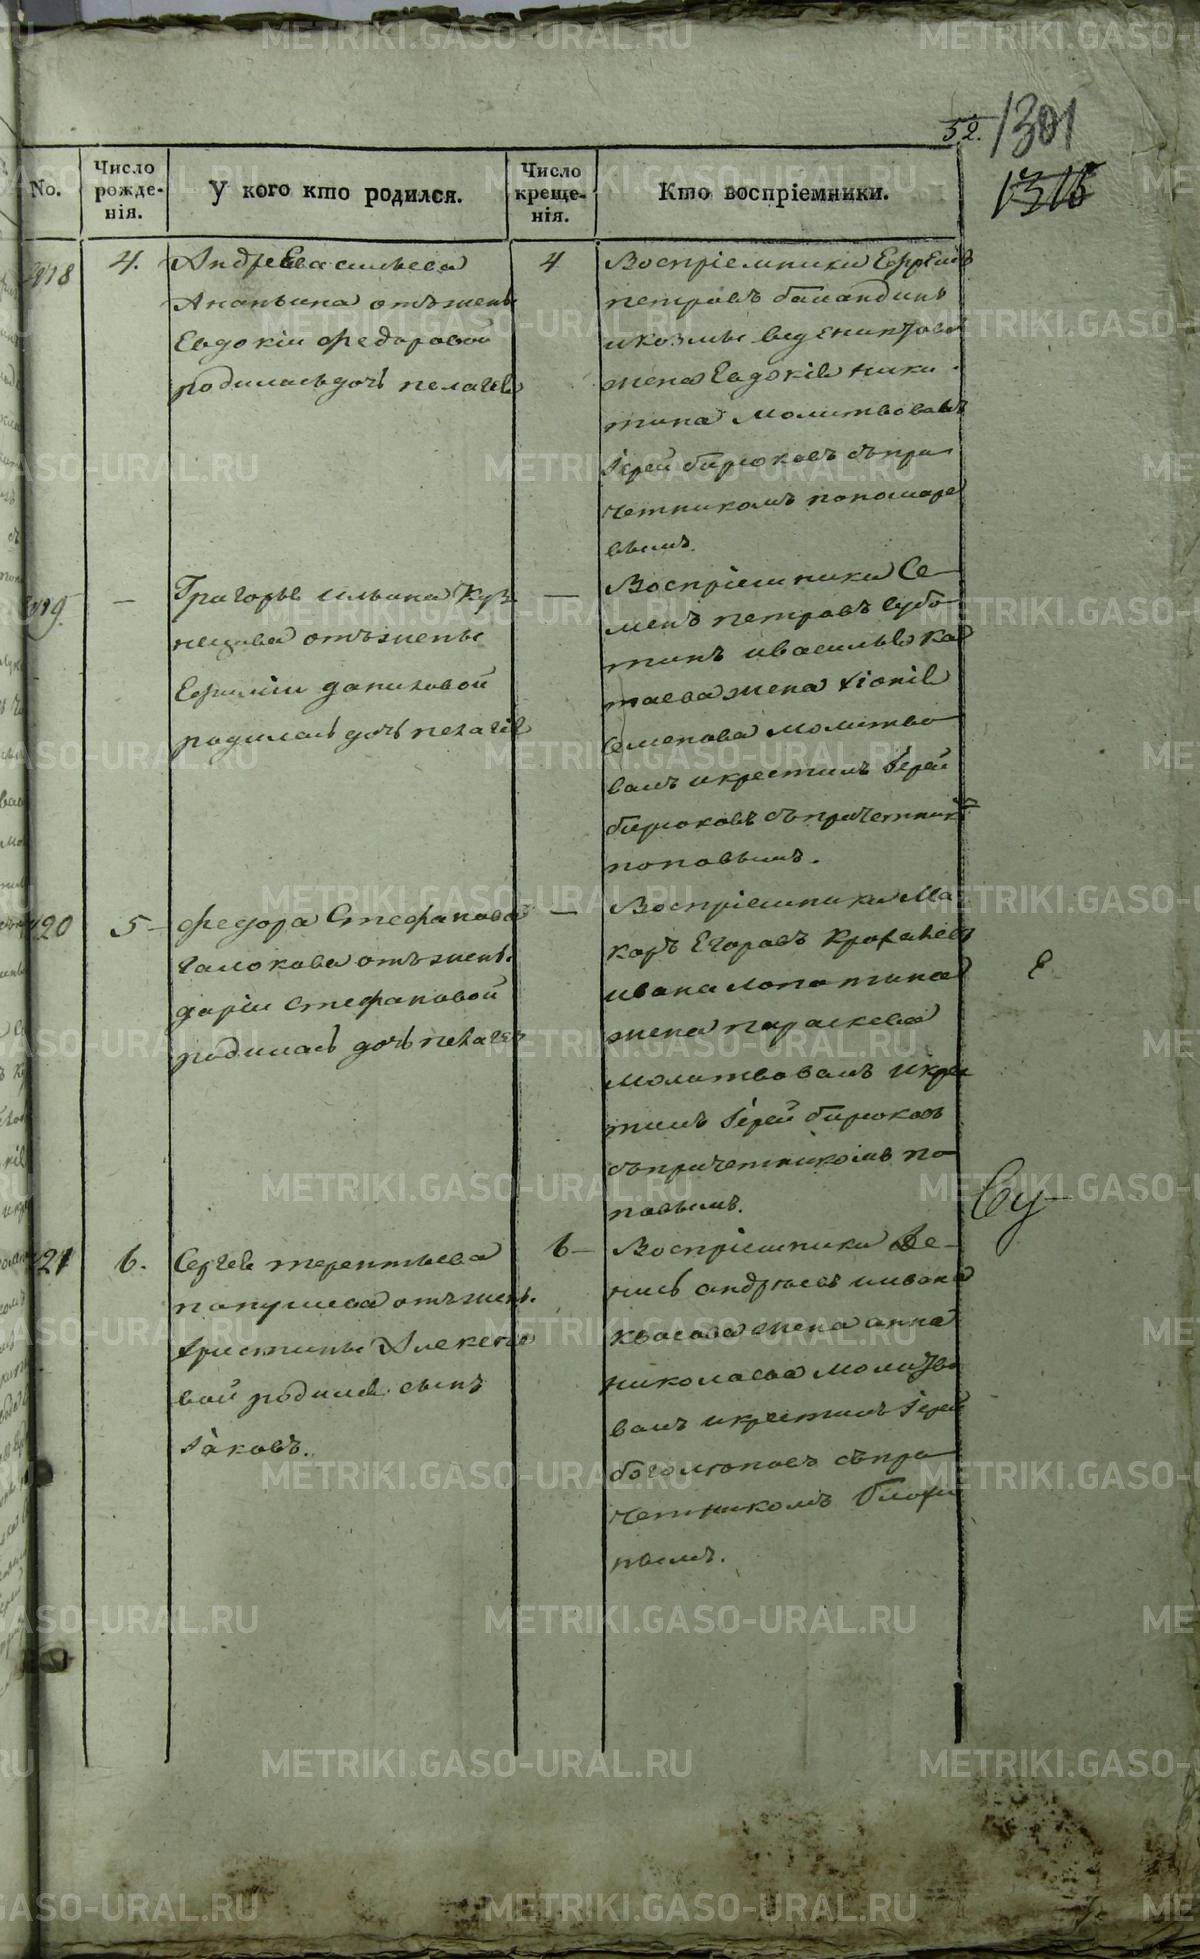 52.
1301
1316
No.
Число рожде-нія.
У кого кто родился.
Число креще-нія.
Кто воспріемники.
418
4.
Андрея Васильева
Ананьина отъ жены
Евдокіи Федоровой
родилась дочь Пелагея
4
Воспріемники Ефремъ
петровъ баландинъ
и козмы
жена Евдокія Ники
тина молитвовалъ
Іерей бирюковъ съ при
четникомъ пономаре
вымъ.
419.
—
Григорья Ильина Куз
нецова отъ жены
Ефиміи даниловой
родилась дочь пелагея
—
Воспріемники Се
менъ петровъ Субо
тинъ и василья Ка
таева жена
Семенова молитво
валъ и крестилъ Іерей
бирюковъ съ причетник
поповымъ.
420
5 –
Федора Стефанова
галюкова отъ жены
дарьи стефановой
родилась дочь пелагея
—
Воспріемники Ма
каръ Егоровъ
ивана лопатина
жена параскева
молитвовалъ и крес
тилъ Іерей бирюковъ
съ причетникомъ по
повымъ.
421
6.
Сергея терентьева
отъ жены
христины Алексее
вой родился сынъ
Іаковъ.
6 –
Воспріемники Де
нисъ андреевъ и ивана
квасова жена анна
николаева молитво
валъ и крестилъ Іерей
боголюповъ съ при
четникомъ
нымъ.
METRIKI.GASO-URAL.RU